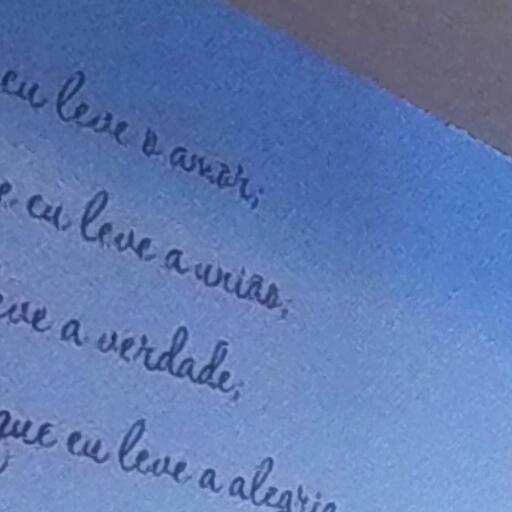 eu leve o amor;
e eu leve a união;
eve a verdade;
que eu leve a alegria